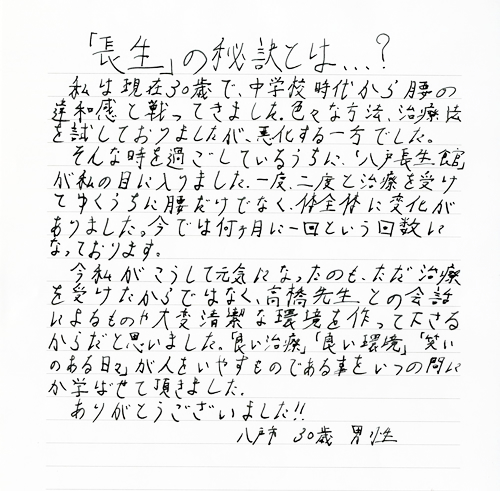 「長生」の秘訣とは…?
私は現在30歳で、中学校時代から腰の
違和感と戦ってきました。色々な方法、治療法
を試しておりましたが、悪化する一方でした。
そんな時を過ごしているうちに、「八戸長生館」
が私の目に入りました。一度、二度と治療を受け
てゆくうちに腰だけでなく、体全体に変化が
ありました。今では何ヶ月に一回という回数に
なっております。
今私がこうして元気になったのも、ただ治療
を受けたからではなく、高橋先生との会話
によるものや大変清潔な環境を作って下さる
からだと思いました。「良い治療」「良い環境」「笑い
のある日々」が人をいやすものである事をいつの間に
か学ばせて頂きました。
ありがとうございました!!
八戸市 30歳 男性